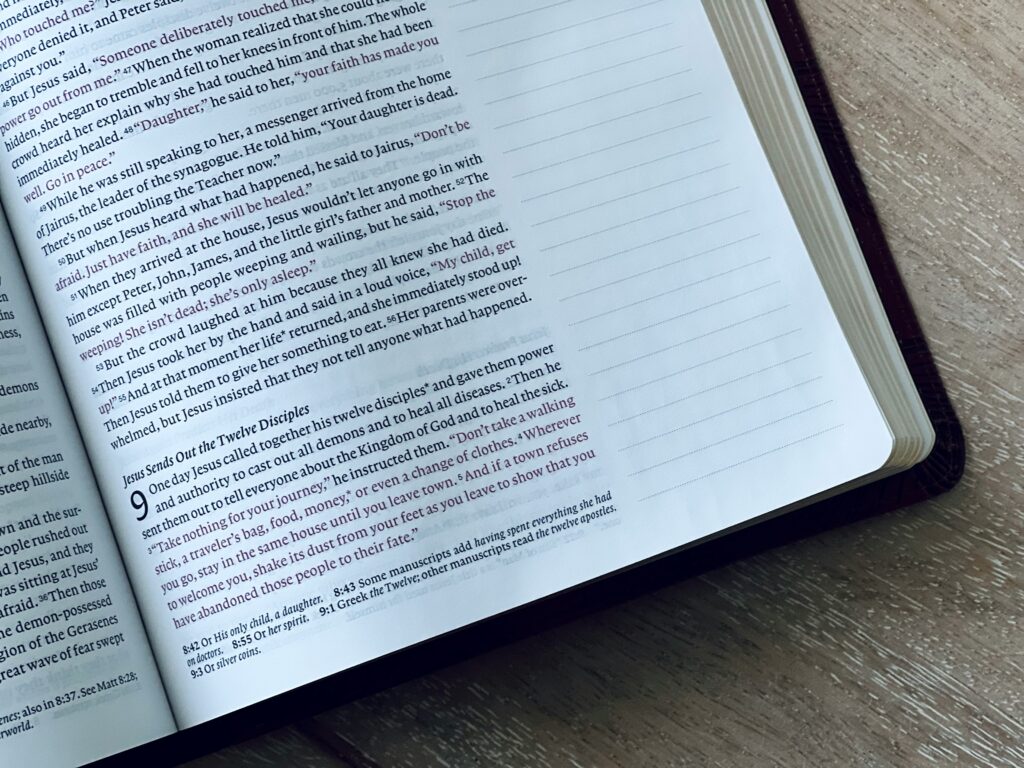 ins
ness,
demons
ide nearby,
rt of the man
steep hillside
wn and the sur-
eople rushed out
d Jesus, and they
was sitting at Jesus'
afraid. 36 Then those
he demon-possessed
gion of the Gerasenes
great wave of fear swept
enes; also in 8:37. See Matt 8:28;
erworld.
mmediately,
Who touched me?"
everyone denied it, and Peter said,
against you."
46 But Jesus said, "Someone deliberately touched me,
power go out from me." 47 When the woman realized that she could
hidden, she began to tremble and fell to her knees in front of him. The whole
crowd heard her explain why she had touched him and that she had been
immediately healed. 48 "Daughter," he said to her, "your faith has made you
well. Go in peace."
49 While he was still speaking to her, a messenger arrived from the home
of Jairus, the leader of the synagogue. He told him, "Your daughter is dead.
There's no use troubling the Teacher now."
50 But when Jesus heard what had happened, he said to Jairus, "Don't be
afraid. Just have faith, and she will be healed."
51 When they arrived at the house, Jesus wouldn't let anyone go in with
him except Peter, John, James, and the little girl's father and mother. 52 The
house was filled with people weeping and wailing, but he said, "Stop the
weeping! She isn't dead; she's only asleep."
53 But the crowd laughed at him because they all knew she had died.
54 Then Jesus took her by the hand and said in a loud voice, "My child, get
up!" 55 And at that moment her life* returned, and she immediately stood up!
Then Jesus told them to give her something to eat. 56 Her parents were over-
whelmed, but Jesus insisted that they not tell anyone what had happened.
Jesus Sends Out the Twelve Disciples
9 One day Jesus called together his twelve disciples* and gave them power
and authority to cast out all demons and to heal all diseases. 2 Then he
sent them out to tell everyone about the Kingdom of God and to heal the sick.
3 "Take nothing for your journey," he instructed them. "Don't take a walking
stick, a traveler's bag, food, money,* or even a change of clothes. 4 Wherever
you go, stay in the same house until you leave town. 5 And if a town refuses
to welcome you, shake its dust from your feet as you leave to show that you
have abandoned those people to their fate."
8:42 Or His only child, a daughter. 8:43 Some manuscripts add having spent everything she had
on doctors. 8:55 Or her spirit. 9:1 Greek the Twelve; other manuscripts read the twelve apostles.
9:3 Or silver coins.